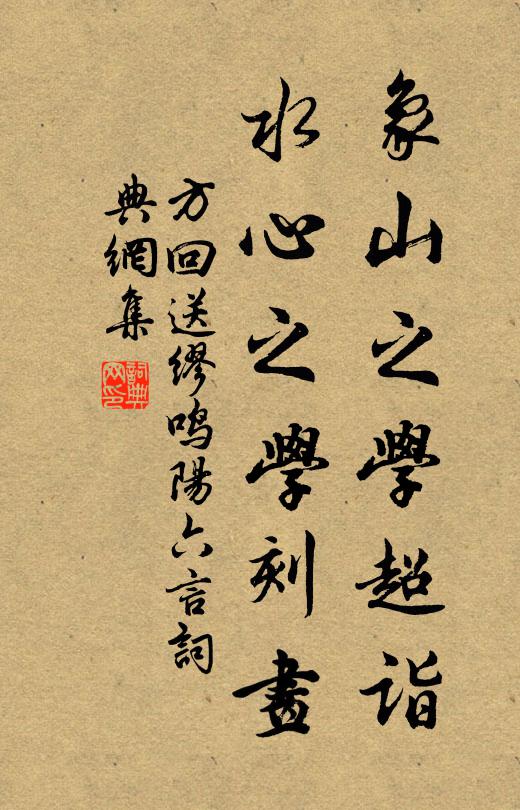 象山之學超詣
水心之學刻畫
方回送繆鳴陽六言詞
典網集
詞典
网印